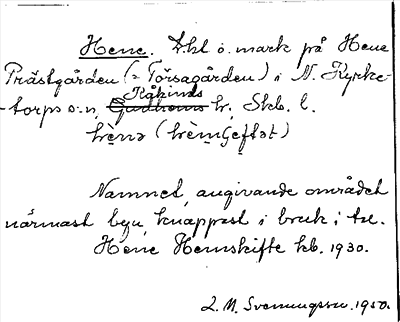 Hene. Dkl o. mark på Hene
Prästgården (= Torsagården) i N. Kyrke-
torps s:n, Kåkinds Gudhems hr, Skb. l.
Namnet, angivande området
närmast byn, knappast i bruk i tal.
Hene Hemskifte kb. 1930.
L. M. Svenungsson. 1950.